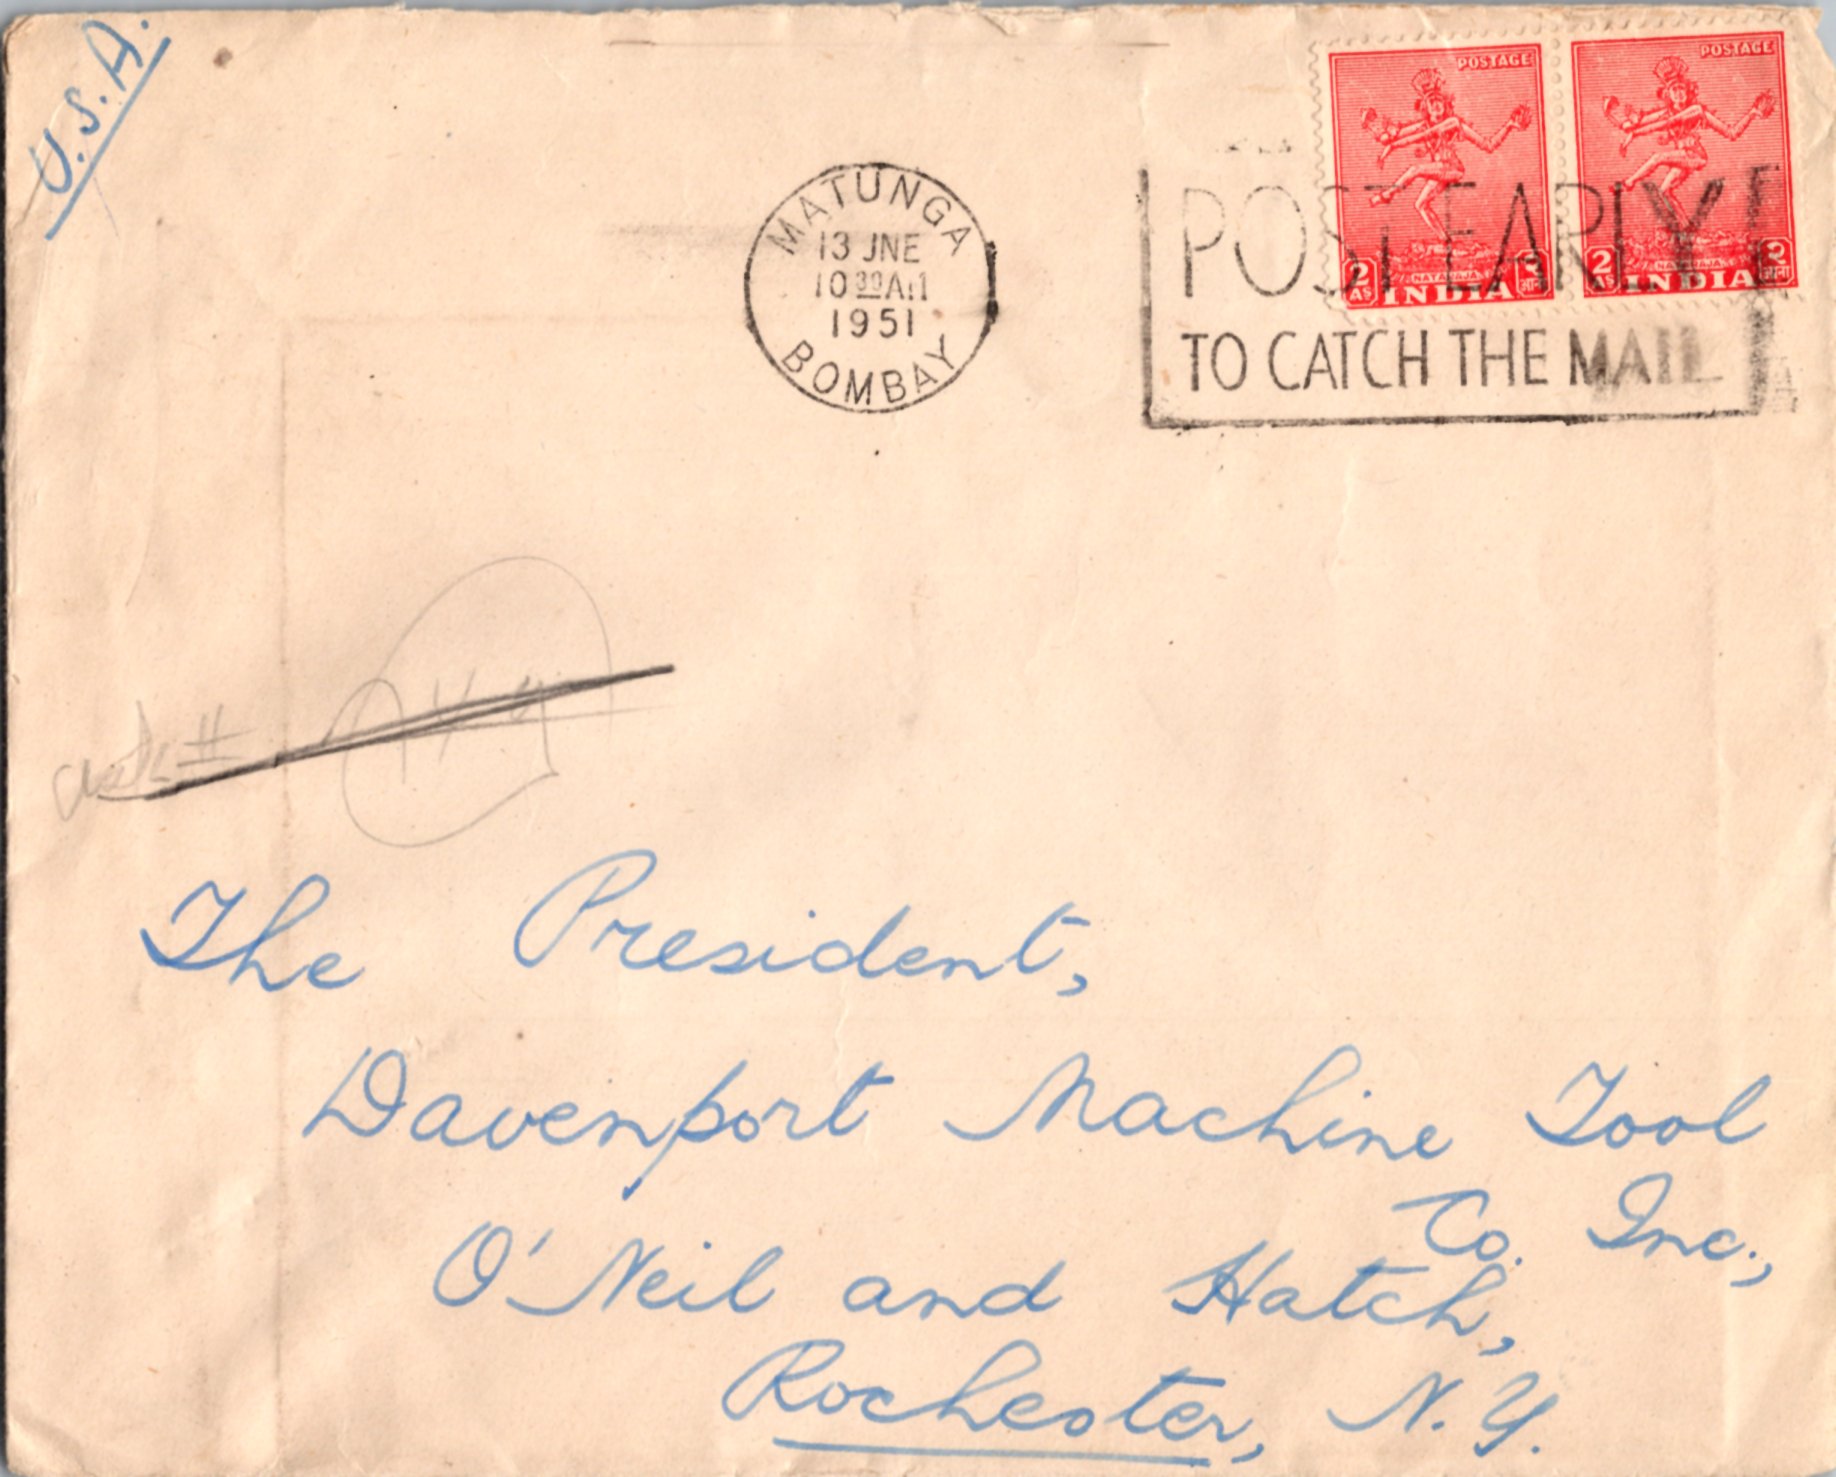 U.S.A.
POSTAGE
NATARAJA
2 AS INDIA २ आना
POSTAGE
NATARAJA
2 AS INDIA २ आना
MATUNGA
13 JNE
10 30 A.M
1951
BOMBAY
POST EARLY
TO CATCH THE MAIL
The President,
Davenport Machine Tool
Co. Inc.,
O'Neil and Hatch,
Rochester, N.Y.